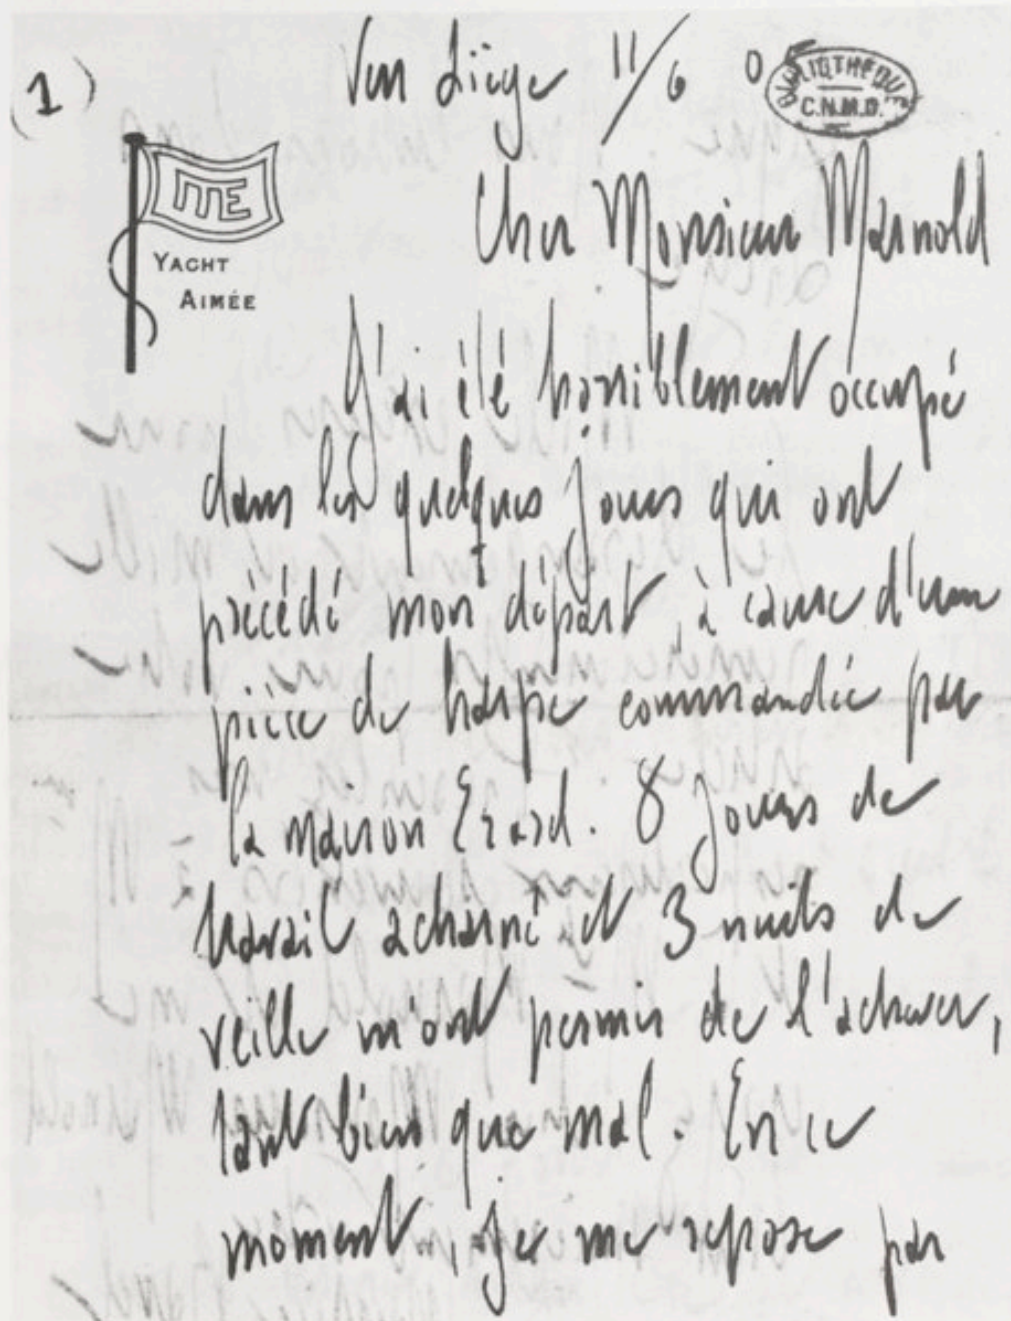 (1)
Vers Liège 11/6 0
BIBLIOTHEQUE
C.N.M.D.
ME
YACHT
AIMÉE
Cher Monsieur Marnold
J'ai été horriblement occupé
dans les quelques jours qui ont
précédé mon départ, à cause d'une
pièce de harpe commandée par
la maison Erard. 8 jours de
travail acharné et 3 nuits de
veille m'ont permis de l'achever,
tant bien que mal. En ce
moment, je me repose par